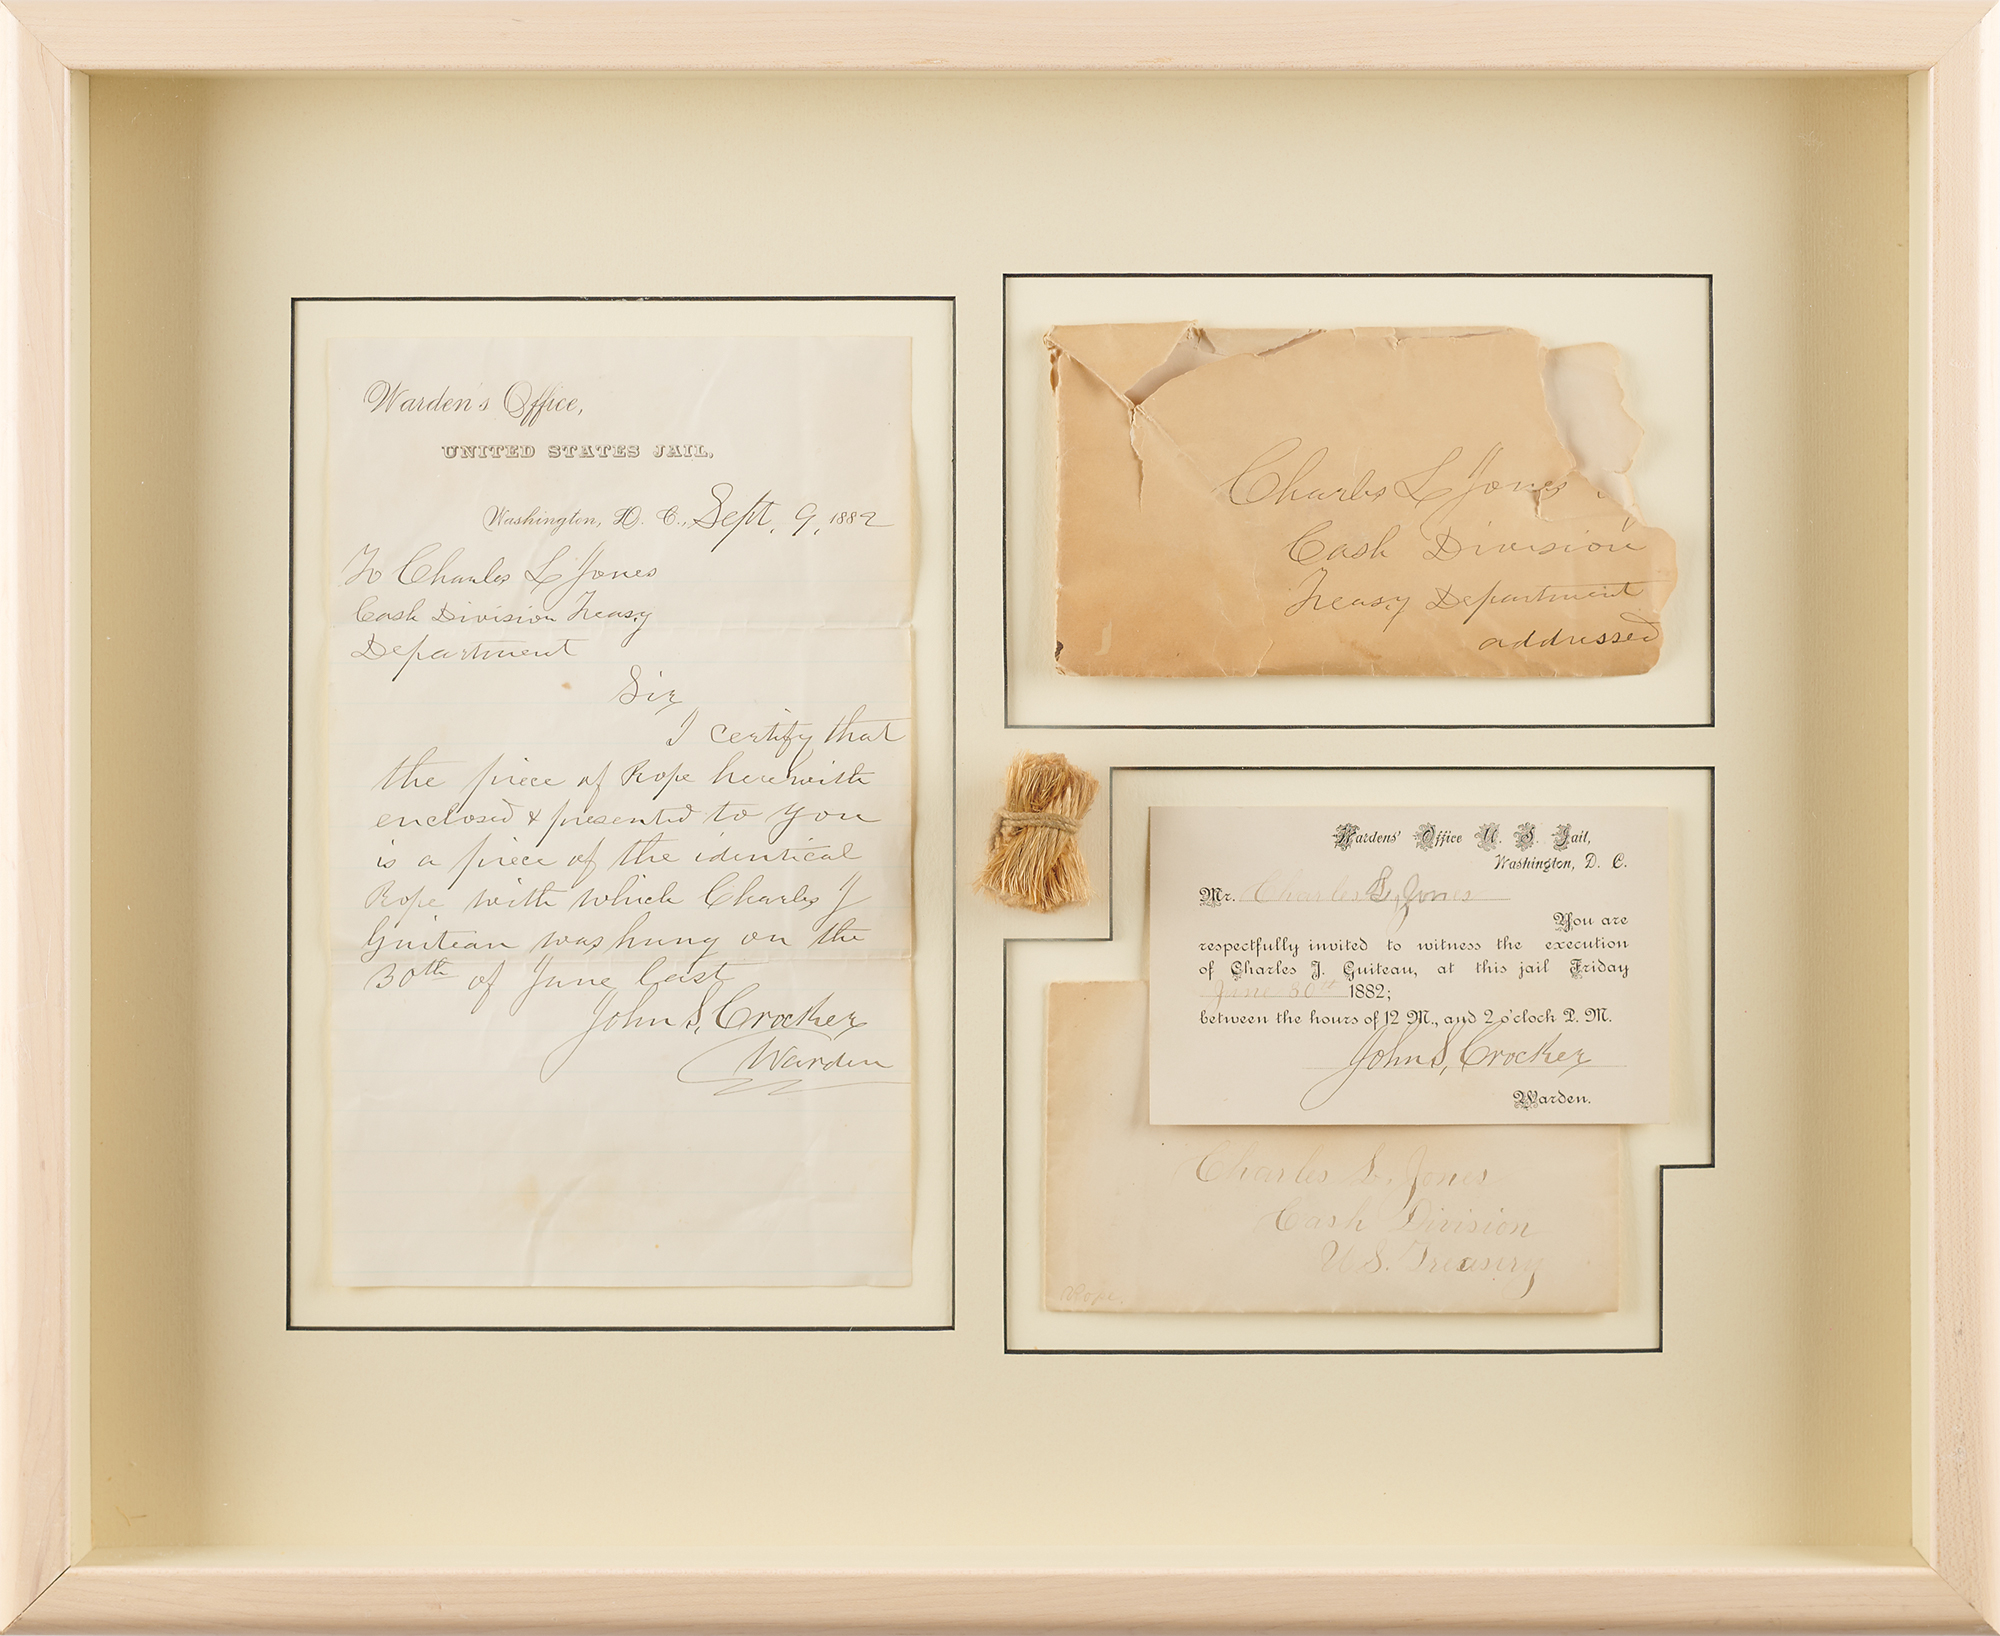 Warden's Office,
UNITED STATES JAIL.
Washington, D. C., Sept. 9, 1882
To Charles L Jones
Cash Division Treasy
Department
Sir
I certify that
the piece of Rope herewith
enclosed & presented to you
is a piece of the identical
Rope with which Charles J
Guiteau was hung on the
30th of June last
John S. Crocker
Warden
Charles L Jones
Cash Division
Treasy Department
addressed
Wardens' Office U. S. Jail,
Washington, D. C.
Mr. Charles L. Jones
You are
respectfully invited to witness the execution
of Charles J. Guiteau, at this jail Friday
June 30th 1882;
between the hours of 12 M., and 2 o'clock P. M.
John S. Crocker
Warden.
Charles L. Jones
Cash Division
U.S. Treasury
Rope.